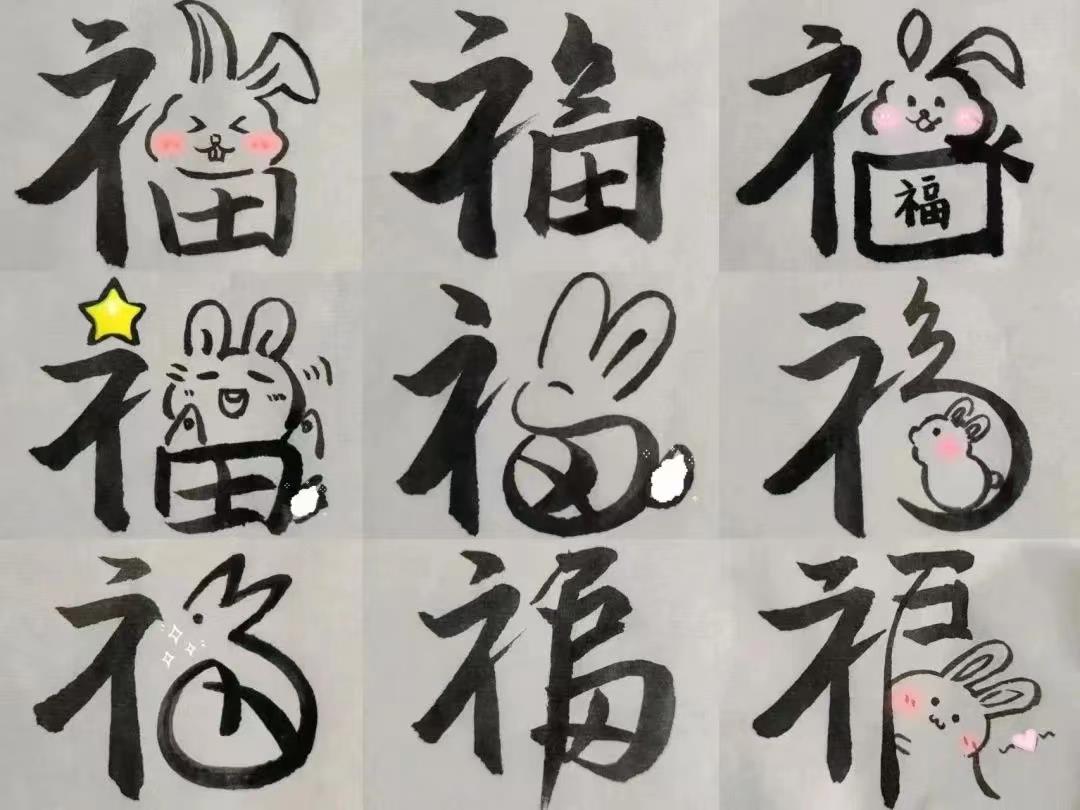 福 福 福
福
福 福 福
福 福 福